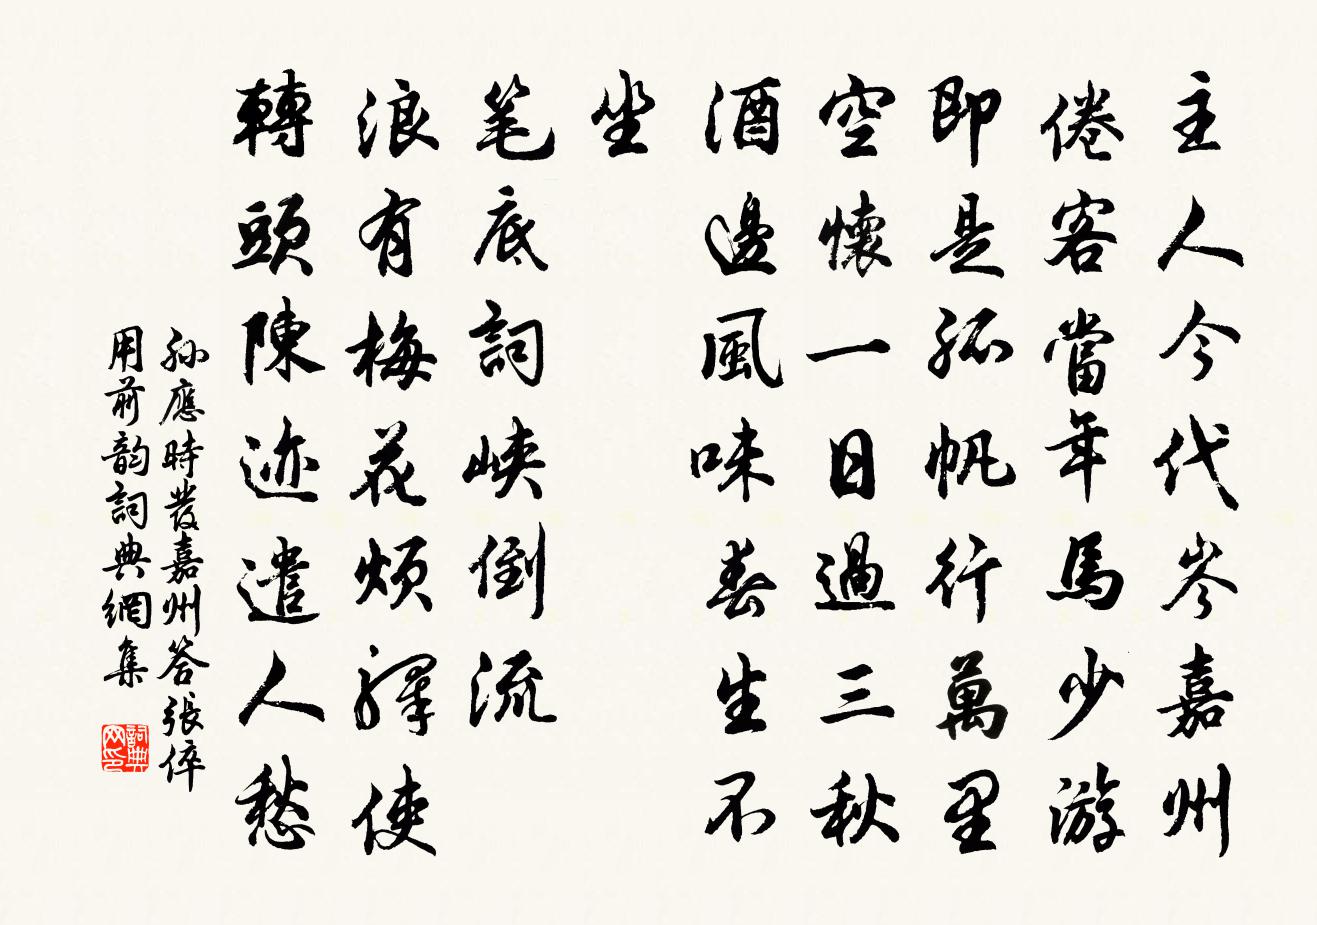 主人今代岑嘉州
倦客當年馬少游
即是孤帆行萬里
空懷一日過三秋
酒邊風味春生不
坐
笔底詞峽倒流
浪有梅花煩驛使
轉頭陳迹遣人愁
孙應時發嘉州答張倅
用前韵詞典網集
詞典网印